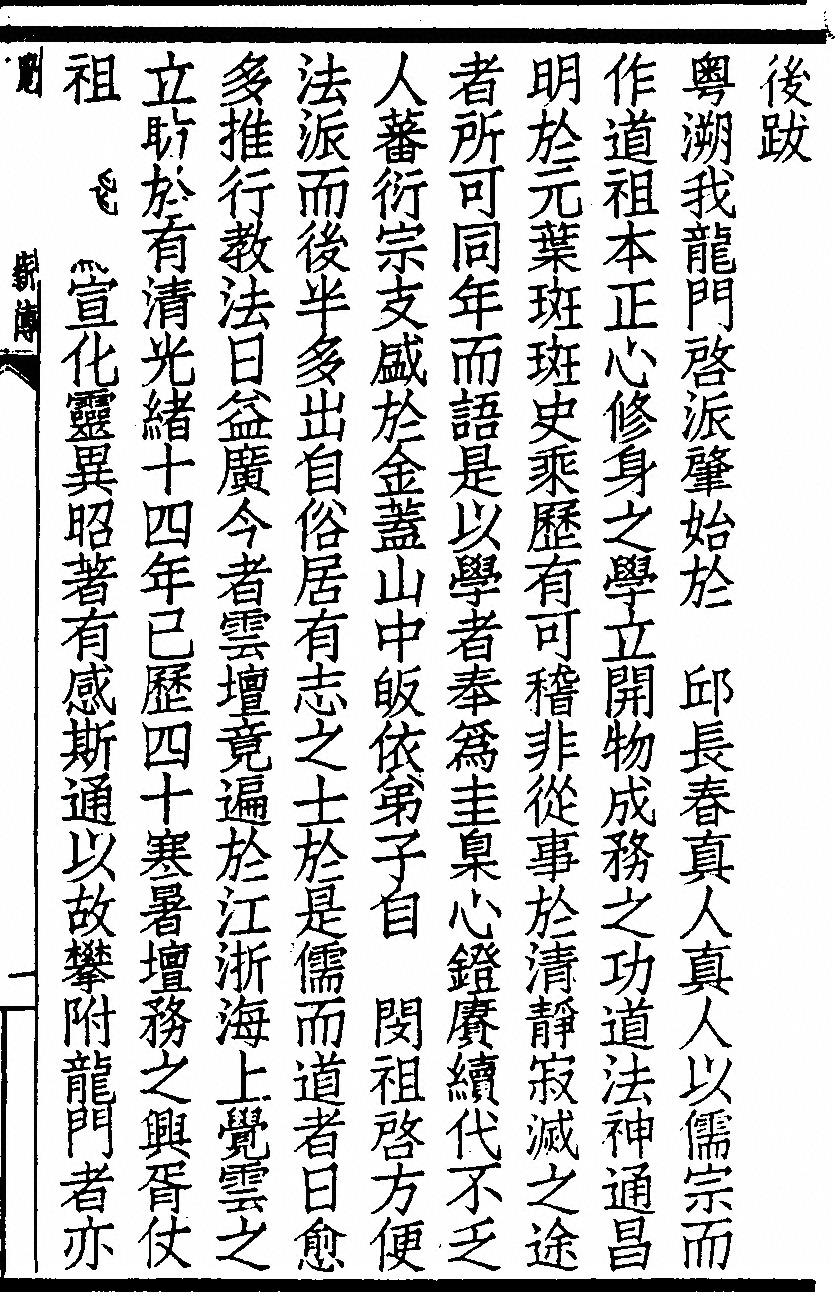 後跋
粤溯我龍門啓派肇始於　邱長春真人真人以儒宗而
作道祖本正心修身之學立開物成務之功道法神通昌
明於元葉斑斑史乘歷有可稽非從事於清靜寂滅之途
者所可同年而語是以學者奉爲圭臬心鐙賡續代不乏
人蕃衍宗支盛於金蓋山中皈依弟子自　閔祖啓方便
法派而後半多出自俗居有志之士於是儒而道者日愈
多推行教法日益廣今者雲壇竟遍於江浙海上覺雲之
立昉於有清光緒十四年已歷四十寒暑壇務之興胥仗
祖　宣化靈異昭著有感斯通以故攀附龍門者亦